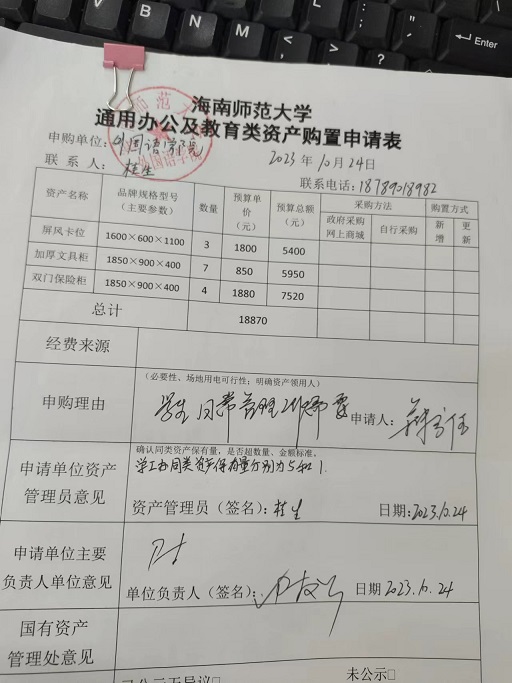 Enter
V
B
N
M
海南师范大学
通用办公及教育类资产购置申请表
申购单位:外国语学院
2023年10月24日
联系人:桂生
联系电话:18789018982
资产名称 品牌规格型号(主要参数) 数量 预算单价(元) 预算总额(元) 采购方法 购置方式
政府采购网上商城 自行采购 新增 更新
屏风卡位 1600×600×1100 3 1800 5400
加厚文具柜 1850×900×400 7 850 5950
双门保险柜 1850×900×400 4 1880 7520
总计 18870
经费来源
(必要性、场地用电可行性;明确资产领用人)
申购理由 学生日常管理工作需要 申请人:
确认同类资产保有量,是否超数量、金额标准。
申请单位资产管理员意见 学工办同类资产保有量分别为5和1.
资产管理员(签名):桂生 日期:2023.10.24
申请单位主要负责人单位意见
单位负责人(签名): 日期 2023.10.24
国有资产管理处意见
已公示无异议□ 未公示□